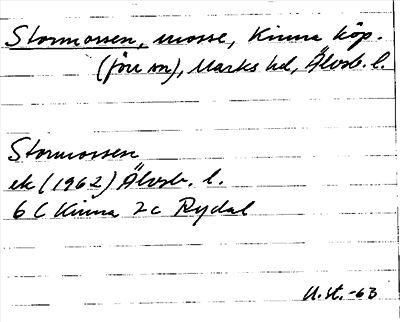 Stormossen, mosse, Kinna köp.
(förr sn), Marks hd, Älvsb. l.
Stormossen
ek (1962) Älvsb. l.
6 C Kinna 2c Rydal
U.st.-63